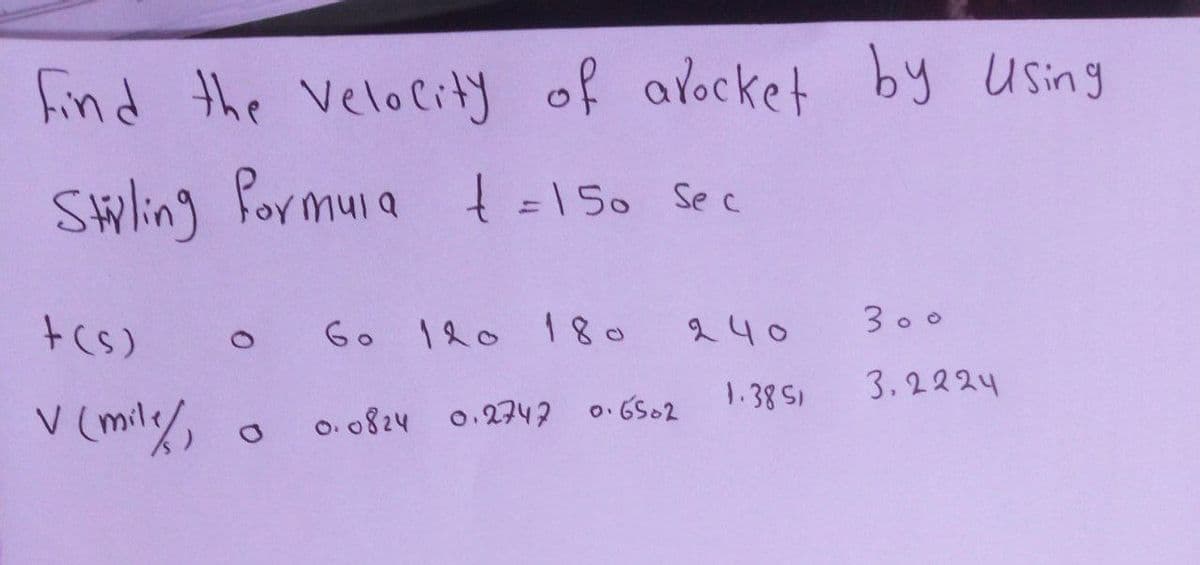 Find the Velocity of arocket by Using
Stirling Formula t = 150 Sec
t(s) 0 60 120 180 240 300
V (mile/s) 0 0.0824 0.2747 0.6502 1.3851 3.2224